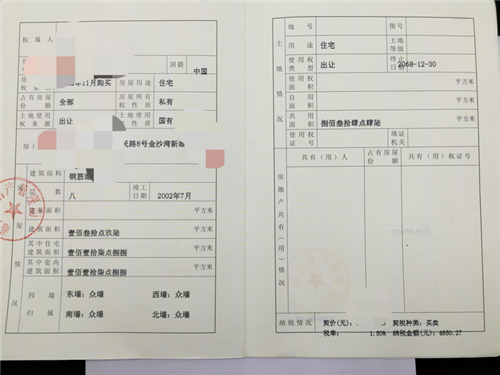 权属人
国籍 中国
年11月购买 房屋用途 住宅
占有房屋份额 全部 房屋所有权性质 私有
土地使用权来源 出让 土地所有权性质 国有
路8号金沙湾新
建筑结构 钢筋
层数 八 竣工日期 2002年7月
建基面积 平方米
建筑面积 壹佰叁拾点玖陆 平方米
其中住宅建筑面积 壹佰壹拾柒点捌捌 平方米
其中套内建筑面积 壹佰壹拾柒点捌捌 平方米
四墙归属 东墙：众墙 西墙：众墙
南墙：众墙 北墙：众墙
房屋情况
土地情况
地号 图号
用途 住宅 土地等级
使用权类型 出让 终止日期 2068-12-30
使用面积 平方米
自用面积 平方米
共用面积 捌佰叁拾肆点肆陆 平方米
使用权证号 填证机关
房地产共有（用）情况
共有（用）人 占有房屋份额 共有（用）权证号
纳税情况 契价(元)： 契税种类：买卖
税率： 1.50% 纳税金额(元)：4650.27